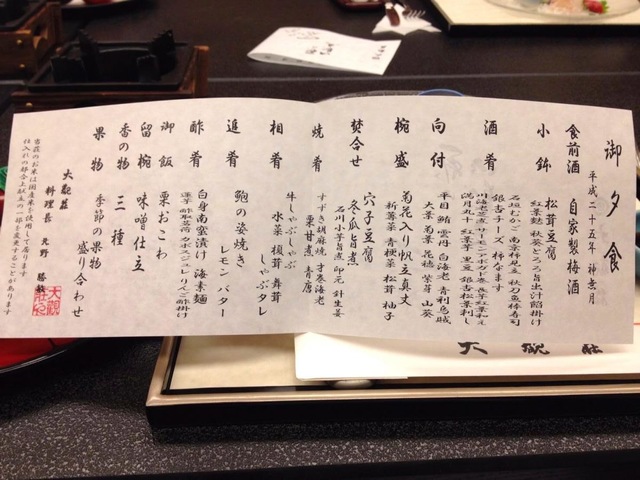 御夕食
平成二十五年 神無月
食前酒 自家製梅酒
小鉢 松茸豆腐
紅葉麩 秋葵とろろ旨出汁餡掛け
酒肴 石垣むかご 南京柿見立 秋刀魚棒寿司
銀杏チーズ 柿なます
川海老芝煮 サーモンアボガド巻 長芋紅葉和え
満月丸十 紅葉芋 黒豆 銀杏松葉刺し
向付 平目 鮪 雲丹 白海老 青利烏賊
大葉 菊葉 花穂 紫芽 山葵
椀盛 菊花入り帆立真丈
新蓴菜 青梗菜 松茸 柚子
焚合せ 穴子豆腐
冬瓜旨煮
石川小芋旨煮 印元 針生姜
焼肴 すずき胡麻焼 才巻海老
栗甘煮 青唐
相肴 牛しゃぶしゃぶ しゃぶタレ
水菜 榎茸 舞茸
追肴 鮑の姿焼き
レモン バター
酢肴 白身南蛮漬け 海素麺
蓮芋 酢取茗荷 カボスジュレ りんご酢掛け
御飯 栗おこわ
留椀 味噌仕立
香の物 三種
果物 季節の果物 盛り合わせ
大観荘
料理長 天野 勝
当荘のお米は国産米を使用して居ります
仕入れの都合上献立の一部を変更することがあります
大観荘